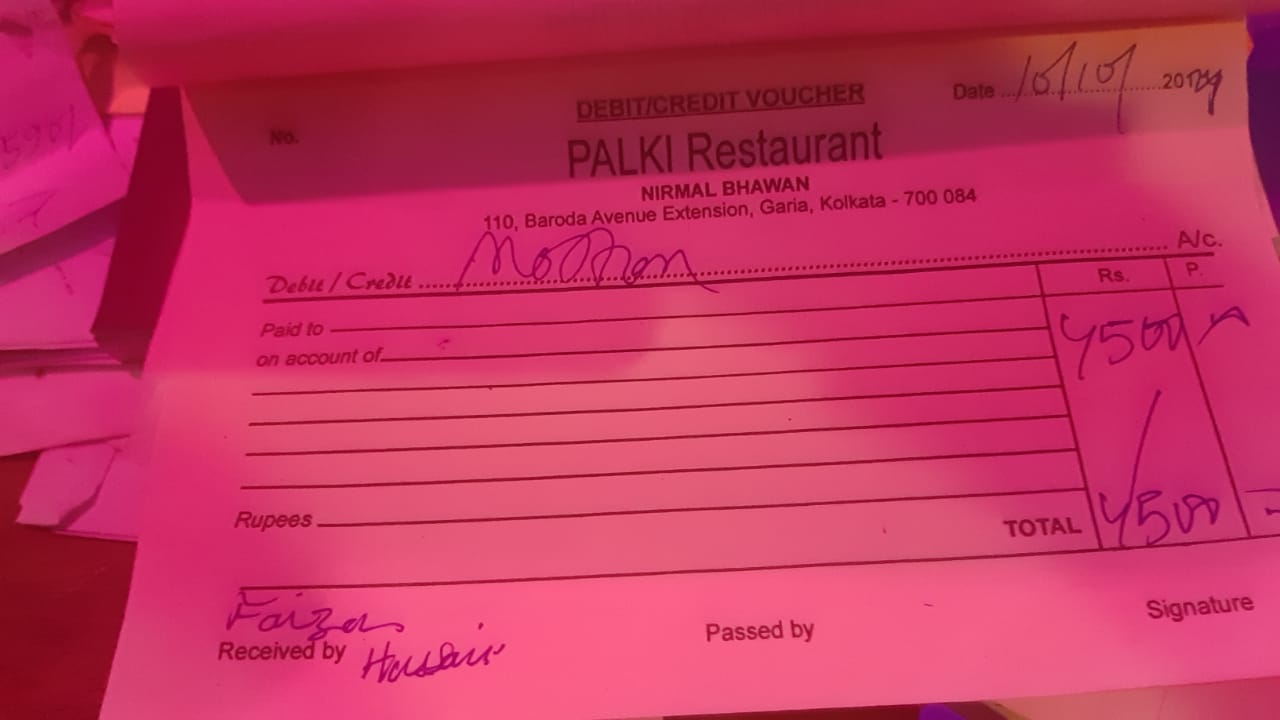 DEBIT/CREDIT VOUCHER
Date 10/10/ 20
No.
PALKI Restaurant
NIRMAL BHAWAN
110, Baroda Avenue Extension, Garia, Kolkata - 700 084
Debit / Credit A/c.
Rs. P.
Paid to 4500
on account of
Rupees
TOTAL 4500
Faizan
Received by Hussain
Passed by
Signature